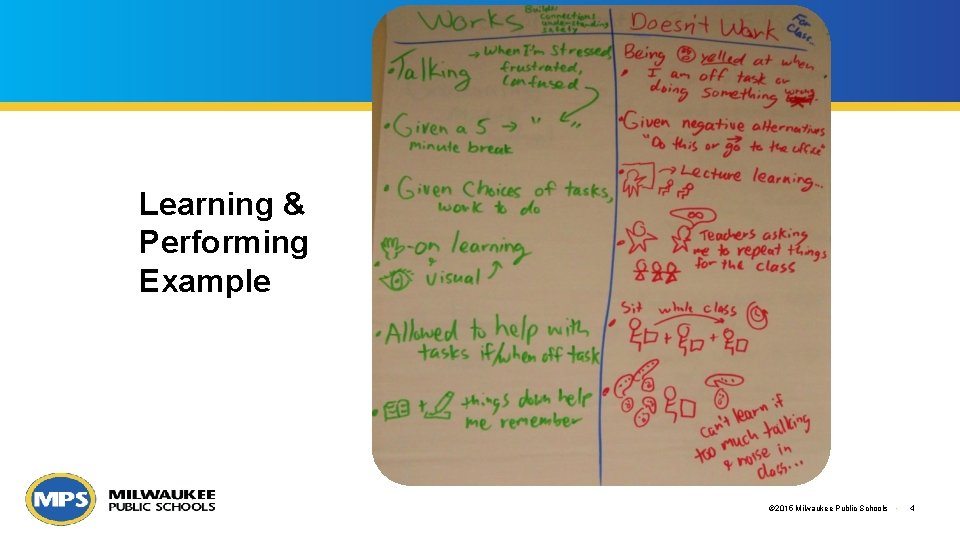 Works
Builds
connections
understanding
safety
Doesn't Work
For
Class..
• Talking
→ When I'm stressed,
frustrated,
confused
• Given a 5 → " "
minute break
• Given choices of tasks,
work to do
-on learning
&
visual
• Allowed to help with
tasks if/when off task
+ things down help
me remember
Being yelled at when
• I am off task or
doing something wrong.
• Given negative alternatives
"Do this or go to the office"
• → Lecture learning...
• Teachers asking
me to repeat things
for the class
Sit whole class
• + +
•
Can't learn if
too much talking
& noise in
class...
Learning &
Performing
Example
MPS MILWAUKEE
PUBLIC SCHOOLS
©2015 Milwaukee Public Schools · 4